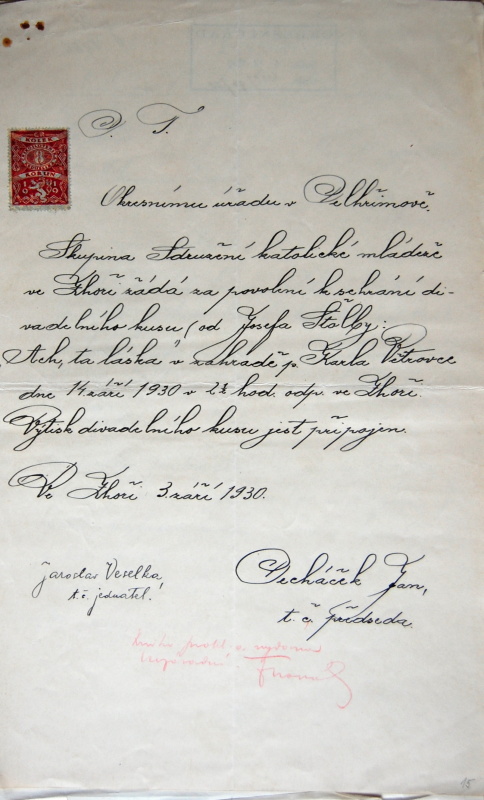 P. T.
Okresnímu úřadu v Pelhřimově.
Skupina Sdružení katolické mládeže
ve Zhoři žádá za povolení k sehrání di-
vadelního kusu (od Josefa Štolby):
„Ach, ta láska" v zahradě p. Karla Větrovce
dne 14. září 1930 v 2½ hod. odp. ve Zhoři.
Výtisk divadelního kusu jest připojen.
Ve Zhoři 3. září 1930.
Jaroslav Veselka,
t. č. jednatel.
Pecháček Jan,
t. č. předseda.
15